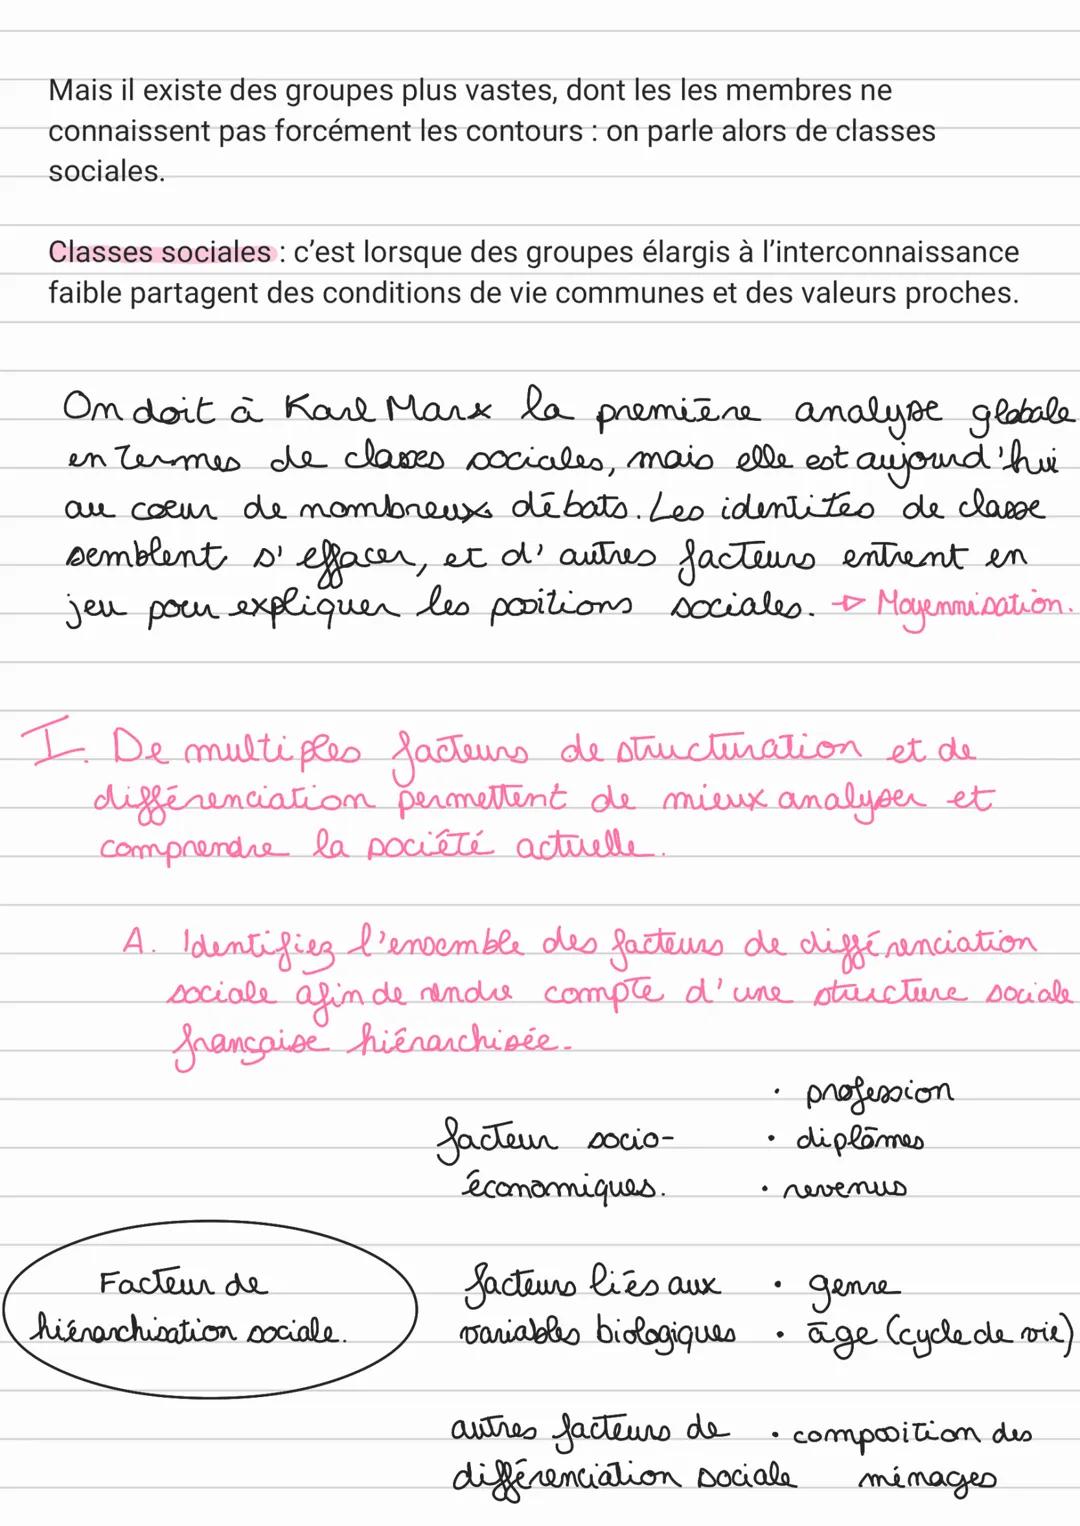 Mais il existe des groupes plus vastes, dont les les membres ne
connaissent pas forcément les contours : on parle alors de classes
sociales.
Classes sociales : c'est lorsque des groupes élargis à l'interconnaissance
faible partagent des conditions de vie communes et des valeurs proches.
On doit à Karl Marx la première analyse globale
en termes de classes sociales, mais elle est aujourd'hui
au coeur de nombreux débats. Les identités de classe
semblent s'effacer, et d'autres facteurs entrent en
jeu pour expliquer les positions sociales. → Moyennisation.
I. De multiples facteurs de structuration et de
différenciation permettent de mieux analyser et
comprendre la société actuelle.
A. Identifiez l'ensemble des facteurs de différenciation
sociale afin de rendre compte d'une structure sociale
française hiérarchisée.
facteur socio-
économiques.
• profession
• diplômes
• revenus
Facteur de
hiérarchisation sociale.
facteurs liés aux
variables biologiques
• genre
• âge (cycle de vie)
autres facteurs de
différenciation sociale
• composition des
ménages